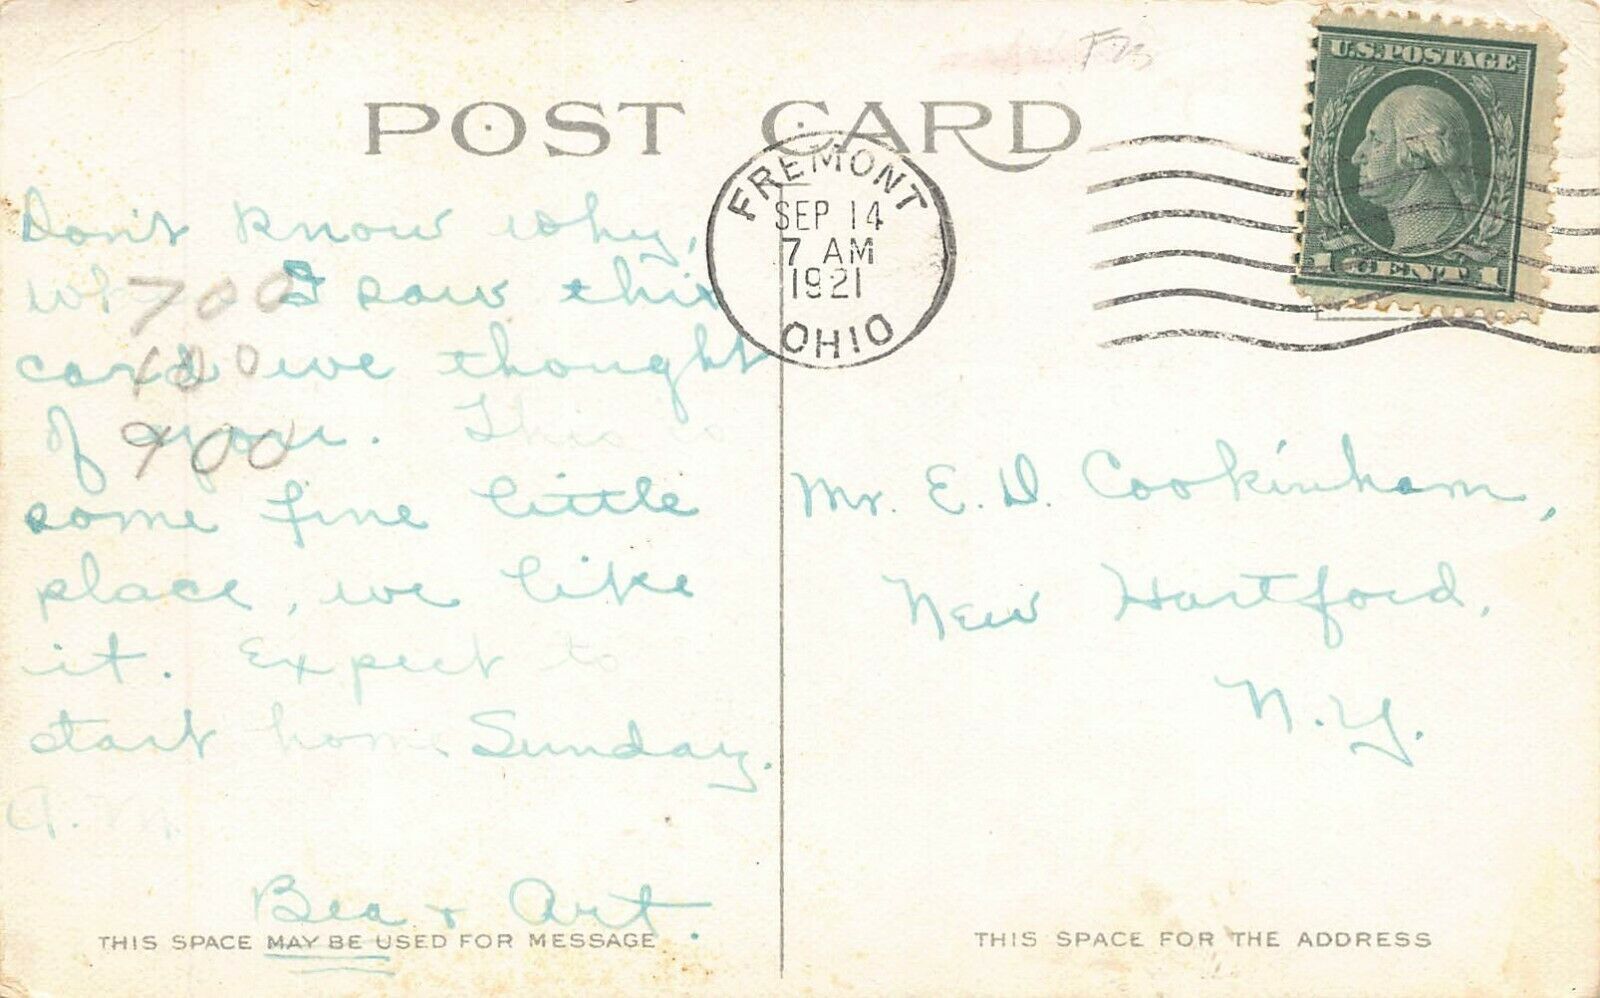 F75
U.S. POSTAGE
1 CENT 1
POST CARD
FREMONT
SEP 14
7 AM
1921
OHIO
Don't know why,
I saw this
card we thought
of you. This is
some fine little
place, we like
it. Expect to
start home Sunday.
A.M.
Bea + Art.
700
100
900
THIS SPACE MAY BE USED FOR MESSAGE
Mr. E. D. Cookinham,
New Hartford,
N.Y.
THIS SPACE FOR THE ADDRESS